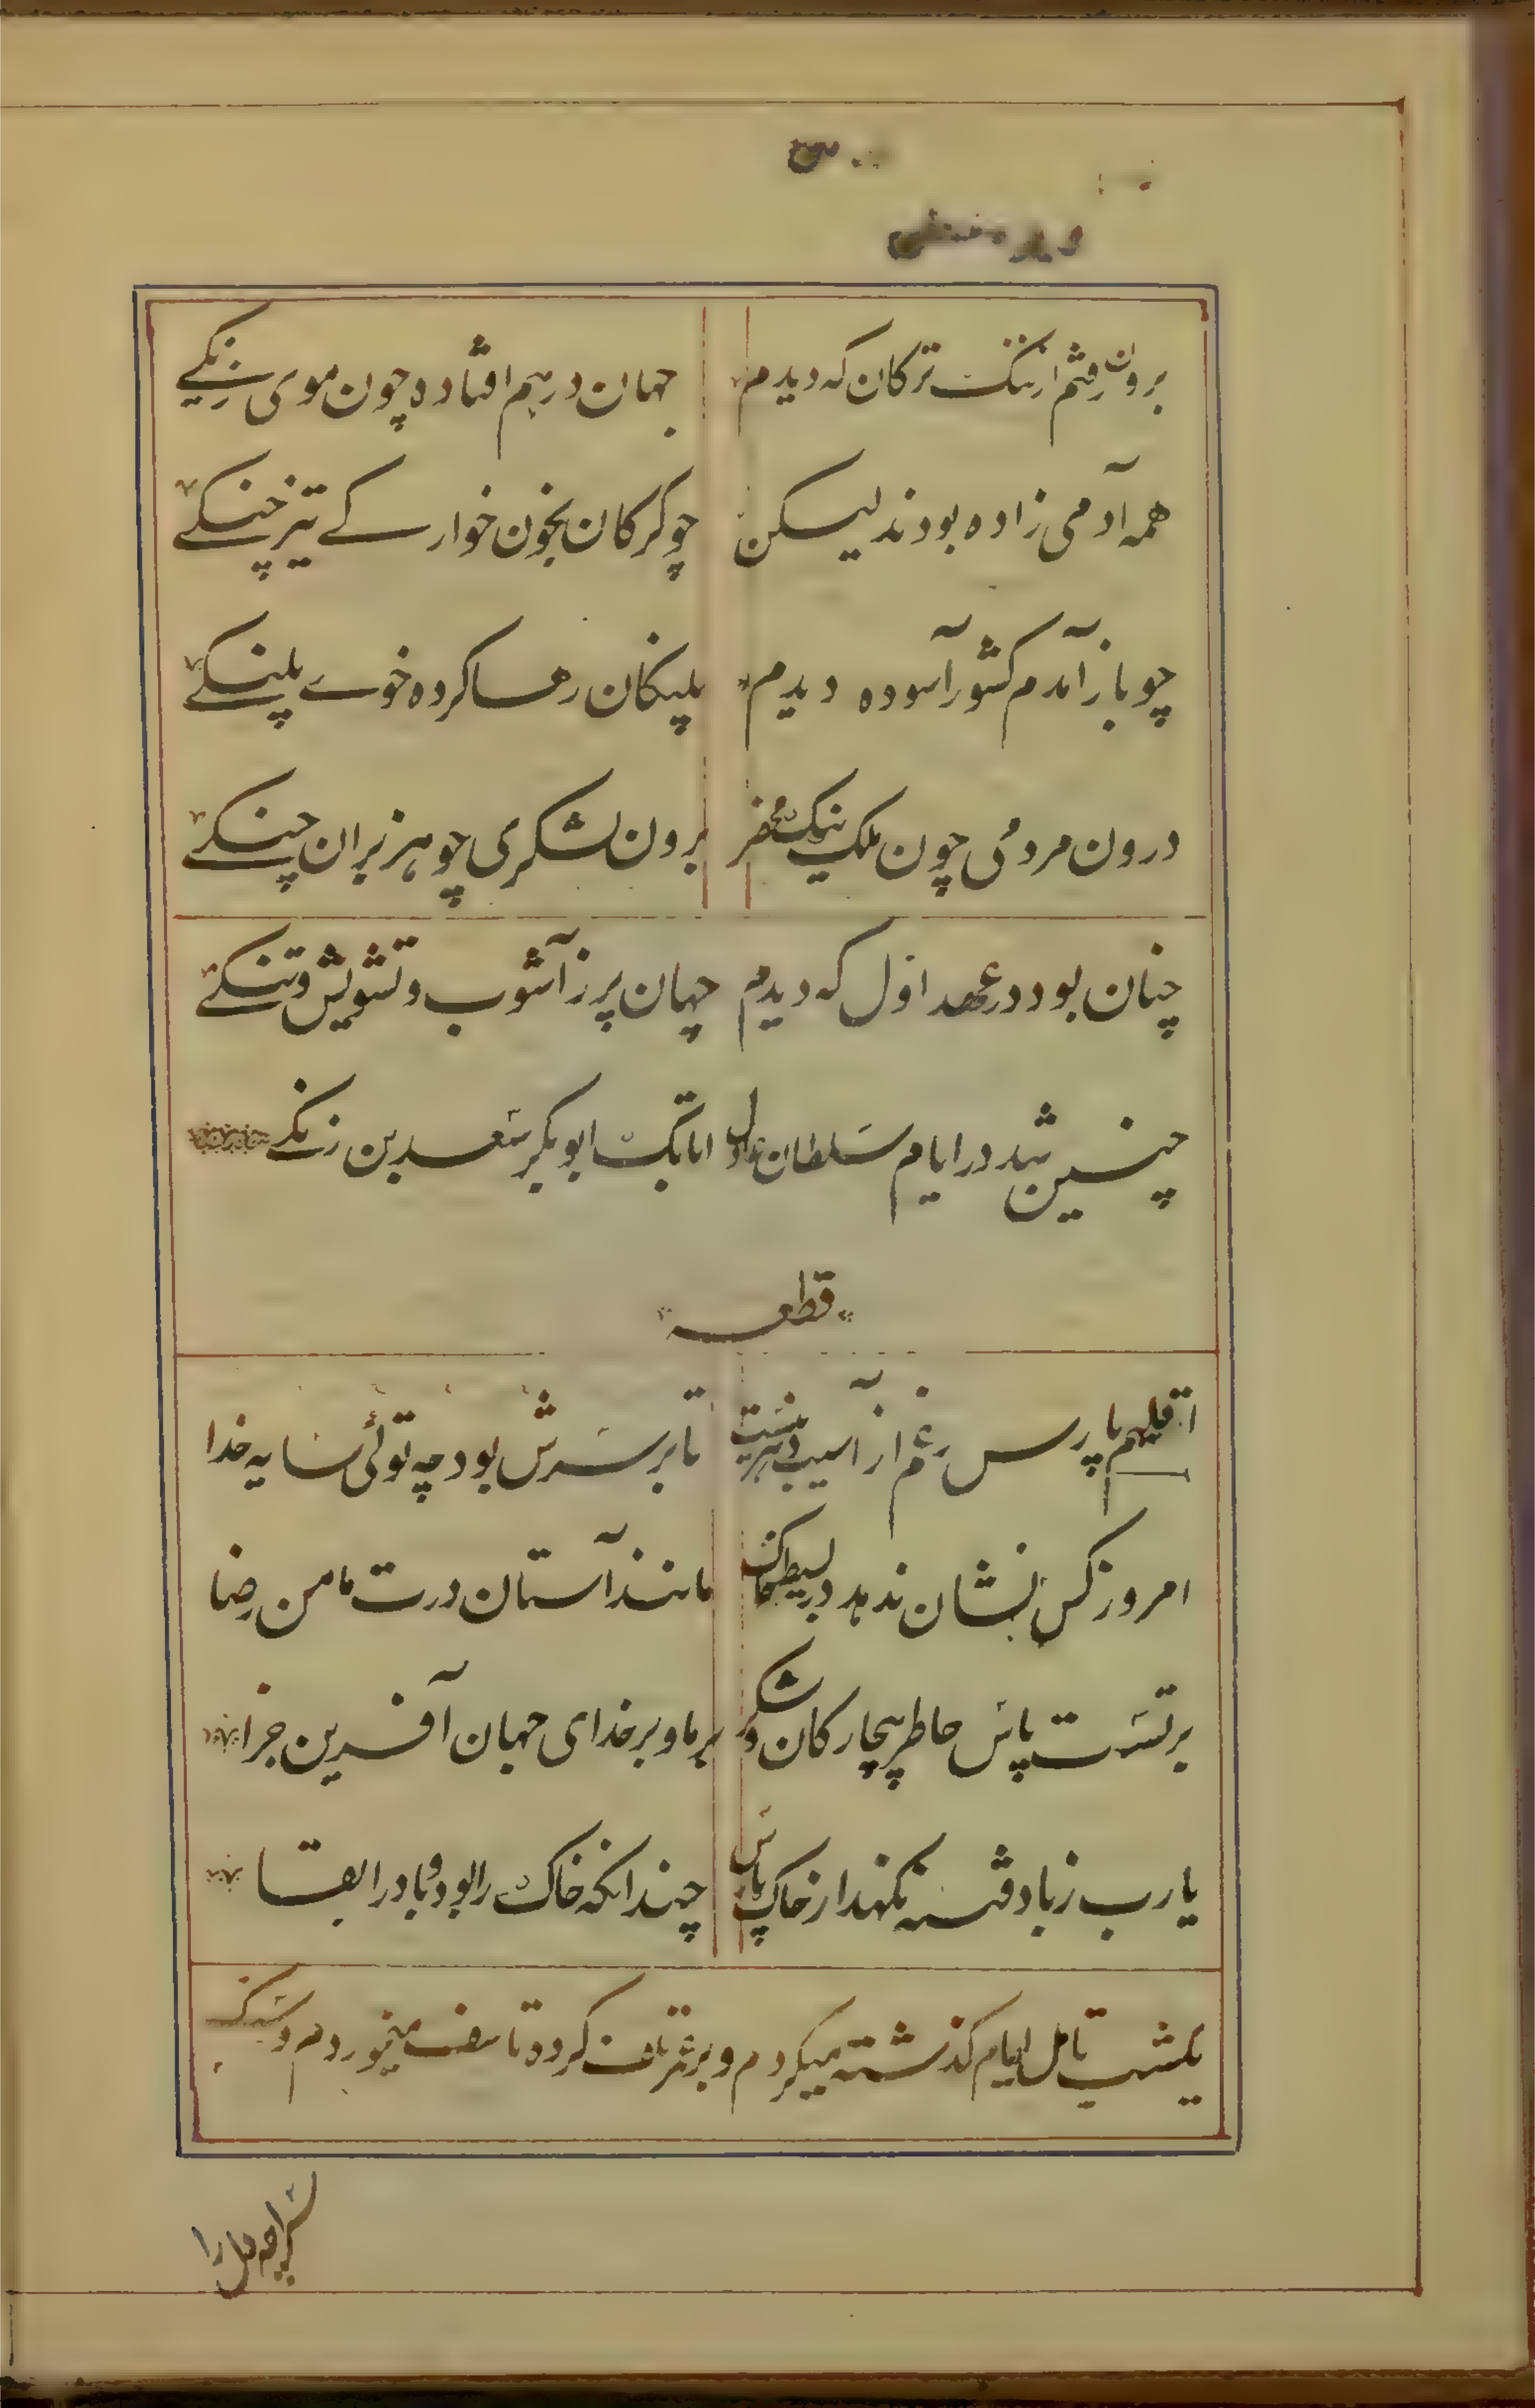 برون رفتم از تنگ ترکان که دیدم جهان درهم افتاده چون موی زنگے
همه آدمی زاده بودند لیسکن چو کرکان بخون خوارکے تیز چنکے
چو باز آمدم کشور آسوده دیدم پلنکان رها کرده خوے پلنکے
درون مردمی چون ملک نیک محضر برون لشکری چو هزبران جنکے
چنان بود در عهد اول که دیدم جهان پر ز آشوب و تشویش و تنکے
چنین شد در ایام سلطان عادل اتابک ابوبکر سعد بن زنکے
قطعه
اقلیم پارس را غم از آسیب دهر نیست تا بر سرش بود چه توئی سایه خدا
امروز کس نشان ندهد در بسیط خاک مانند آستان درت مامن رضا
بر تست پاس خاطر بیچارکان و شکر بر ما و بر خدای جهان آفرین جزا
یا رب ز باد فتنه نکهدار خاک پارس چندانکه خاک را بود و باد را بقا
یکشب تامل ایام کذشته میکردم و بر عمر تلف کرده تاسف میخوردم و سنک
سراچه دل را